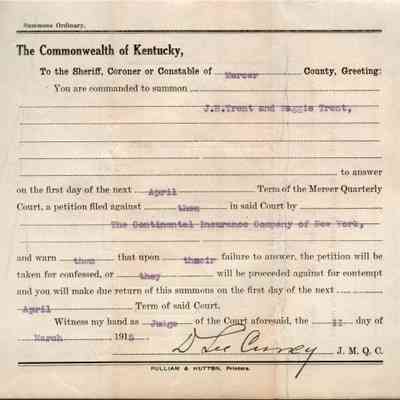 Summons Ordinary.
The Commonwealth of Kentucky,
To the Sheriff, Coroner or Constable of Mercer County, Greeting:
You are commanded to summon
J.H.Trent and Maggie Trent,
to answer
on the first day of the next April Term of the Mercer Quarterly
Court, a petition filed against them in said Court by
The Continental Insurance Company of New York,
and warn them that upon their failure to answer, the petition will be
taken for confessed, or they will be proceeded against for contempt
and you will make due return of this summons on the first day of the next
April Term of said Court.
Witness my hand as Judge of the Court aforesaid, the 11 day of
March 1915
D Lee Currey J. M. Q. C.
PULLIAM & HUTTON, Printers.